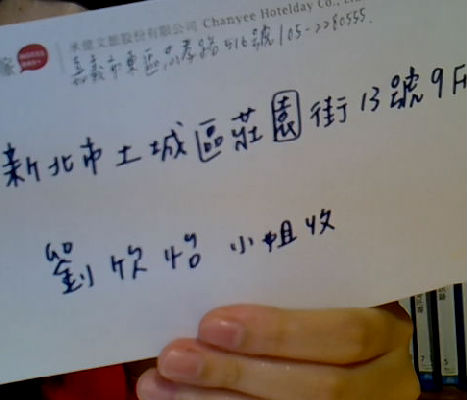 承億文旅股份有限公司 Chanyee Hotelday Co., Ltd.
嘉義市東區忠孝路516號 | 05-2280555.
新北市土城區莊園街13號9F
劉欣怡 小姐收